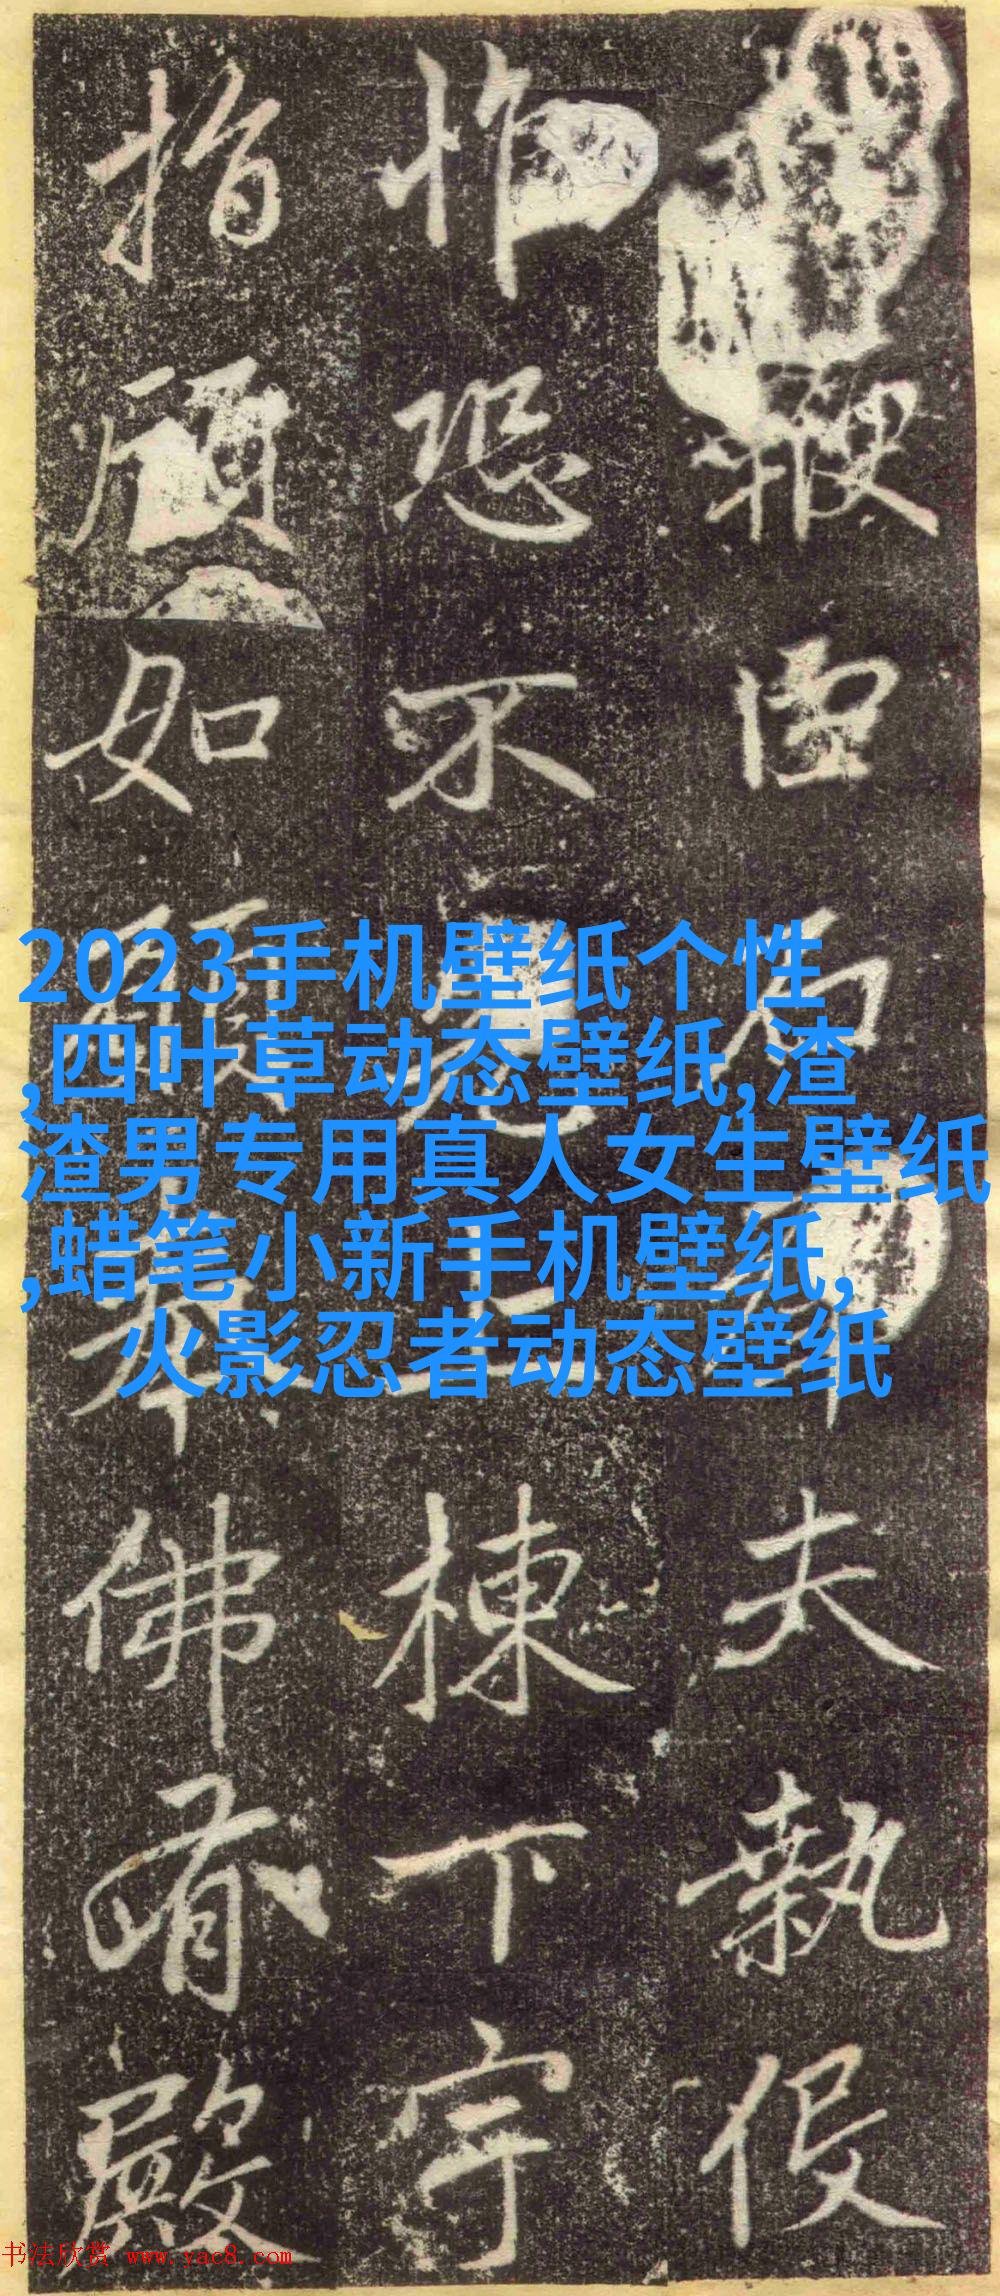 虚而夫執伇
怍恐不克上棟下宇
指顧如奉佛有殿
2023手机壁纸个性
,四叶草动态壁纸,渣
渣男专用真人女生壁纸
,蜡笔小新手机壁纸,
火影忍者动态壁纸
书法欣赏 www.yac8.com